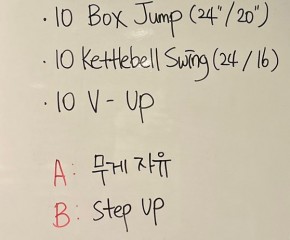 · 10 Box Jump (24"/20")
· 10 Kettlebell Swing (24/16)
· 10 V-Up
A: 무게 자유
B: Step UP